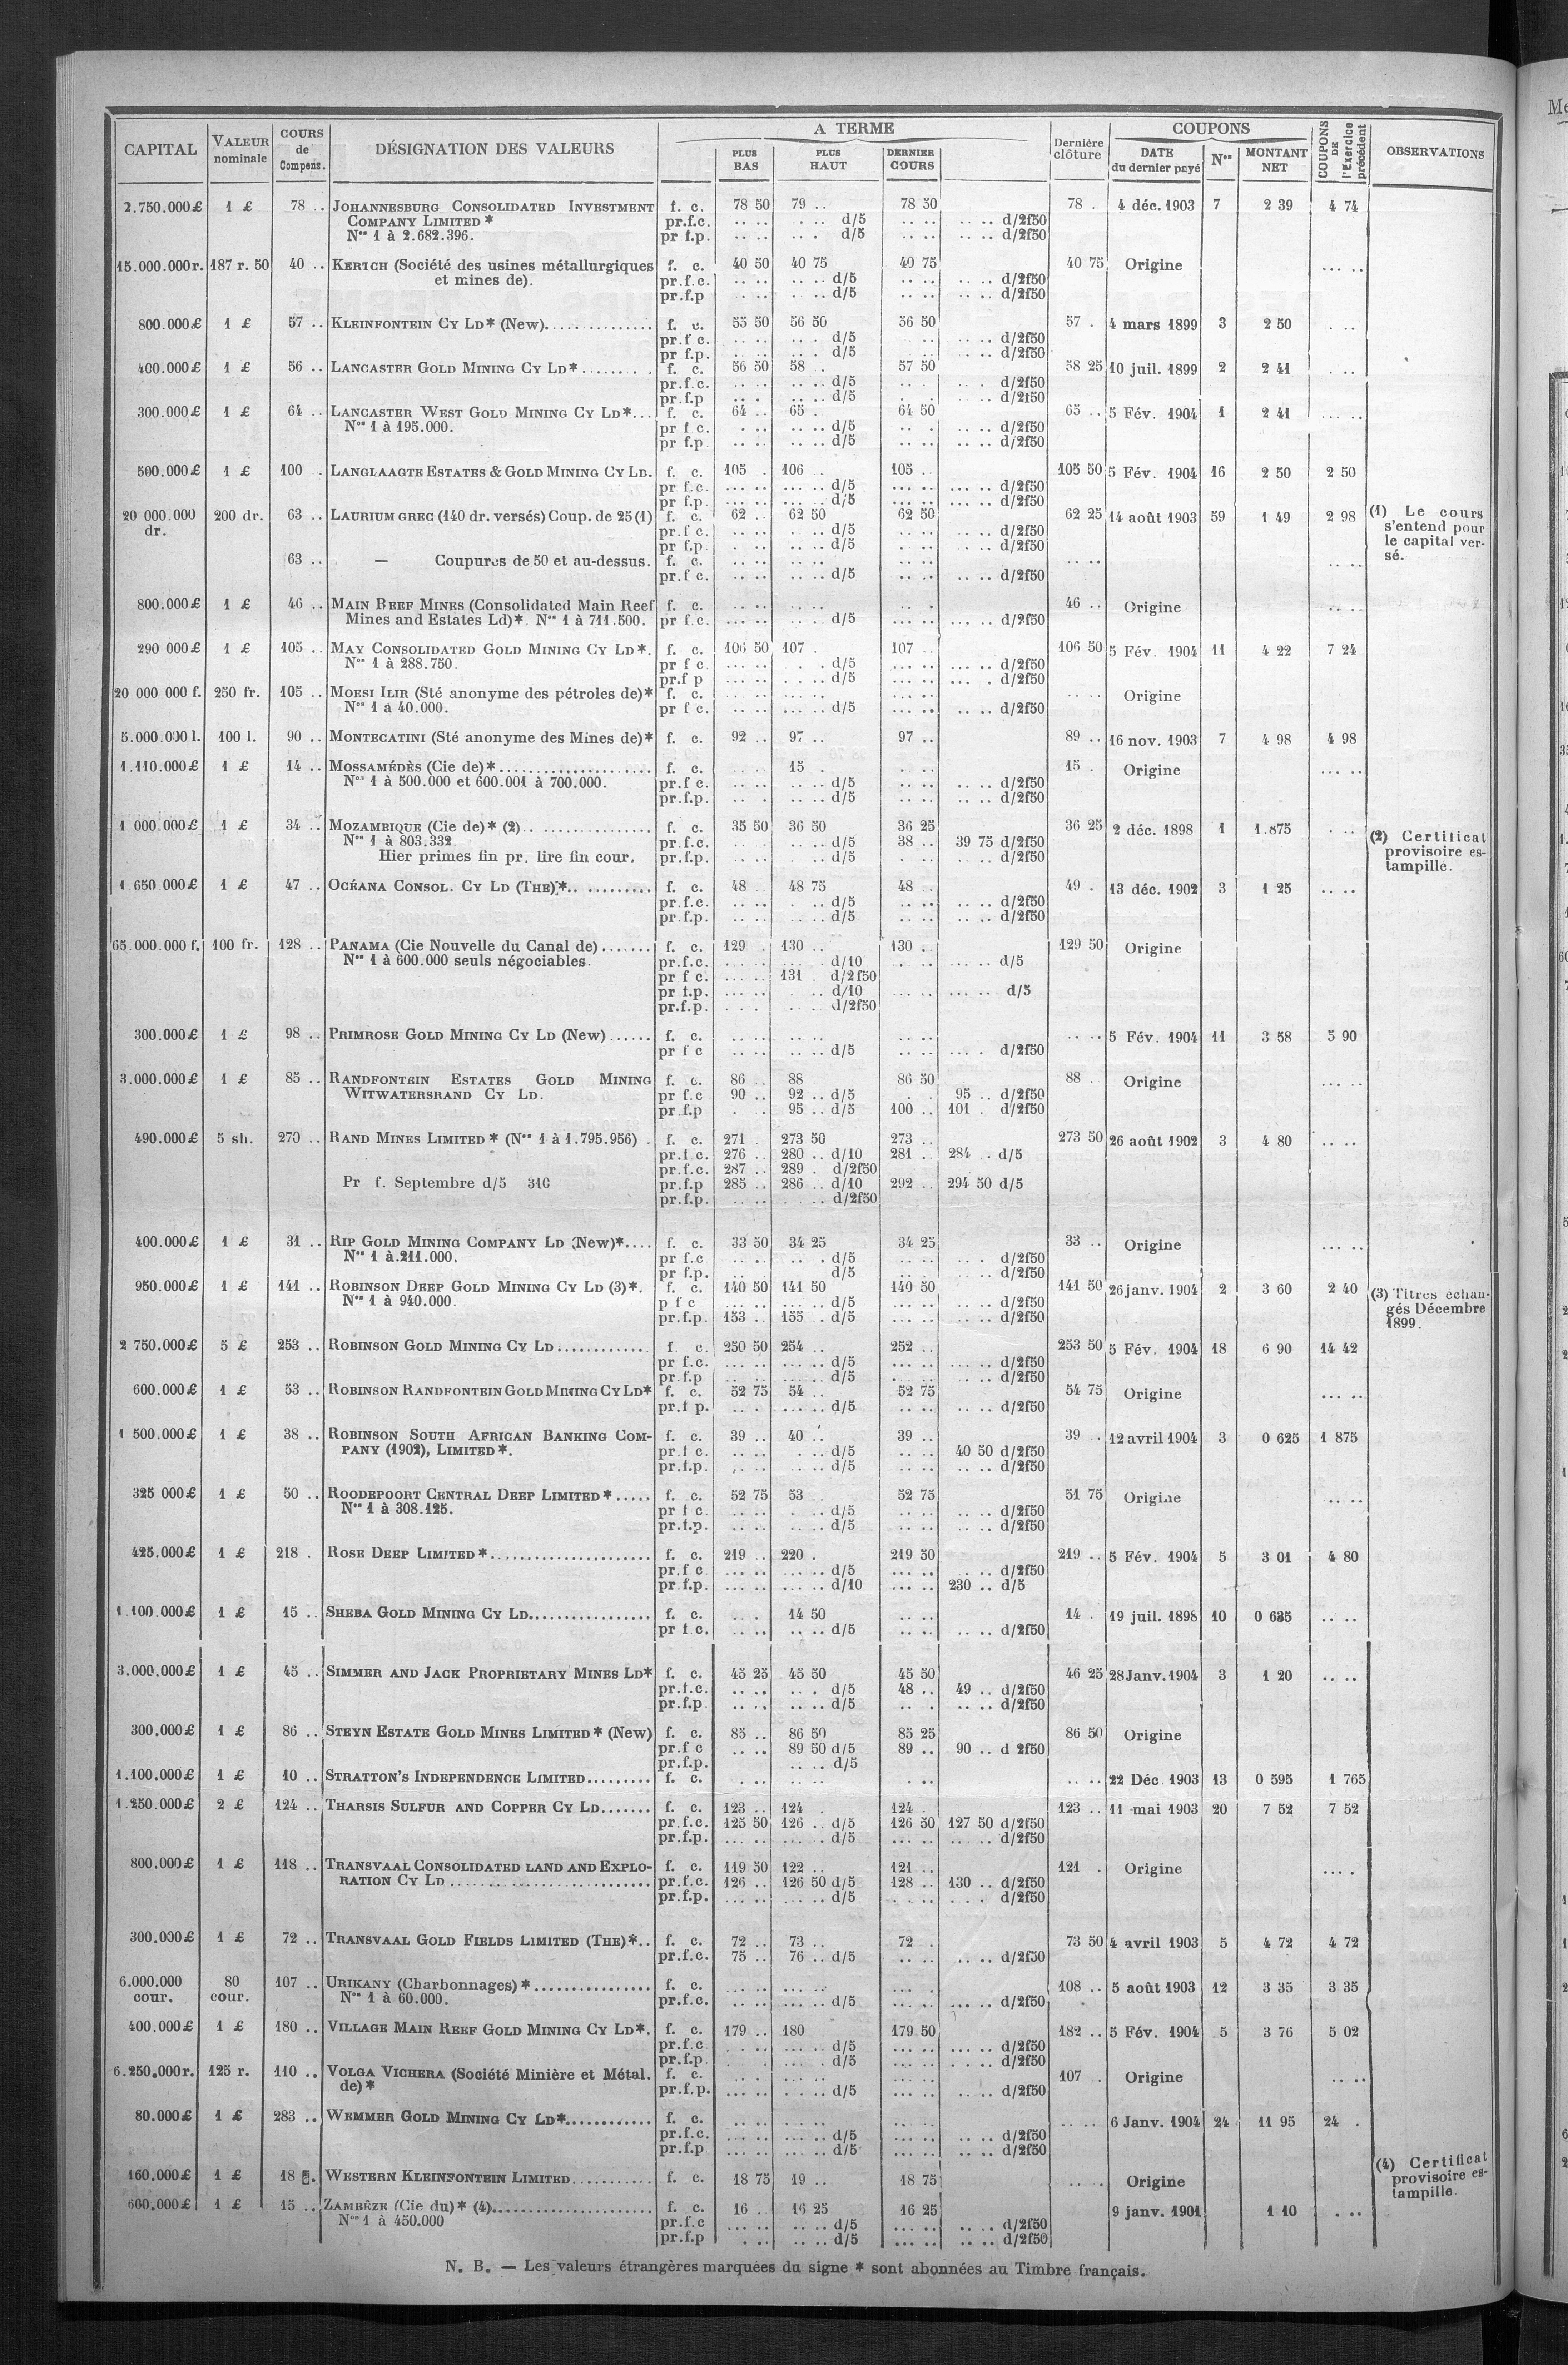 CAPITAL | VALEUR nominale | COURS de Compens. | DÉSIGNATION DES VALEURS | A TERME | PLUS BAS | PLUS HAUT | DERNIER COURS | Dernière clôture | COUPONS | DATE du dernier payé | Nos | MONTANT NET | COUPONS DE l'Exercice précédent | OBSERVATIONS
2.750.000£ 1 £ 78 .. JOHANNESBURG CONSOLIDATED INVESTMENT f. c. 78 50 79 .. 78 50 78 . 4 déc. 1903 7 2 39 4 74
COMPANY LIMITED * pr.f.c. .. .. .. . d/5 .. .. .. .. d/2f50
Nos 1 à 2.682.396. pr f.p. .. .. .. . d/5 .. .. .. .. d/2f50
15.000.000r. 187 r. 50 40 .. KERTCH (Société des usines métallurgiques f. c. 40 50 40 75 40 75 40 75 Origine ... ..
et mines de). pr.f.c. .. .. .. .. d/5 .. .. .. .. d/2f50
pr.f.p .. .. . .. d/5 .. .. .. .. d/2f50
800.000£ 1 £ 57 .. KLEINFONTEIN CY LD* (New) f. c. 55 50 56 50 56 50 57 . 4 mars 1899 3 2 50 . ..
pr.f c. .. .. .. . d/5 .. .. .. .. d/2f50
pr f.p. .. .. .. . d/5 .. .. .. .. d/2f50
400.000£ 1 £ 56 .. LANCASTER GOLD MINING CY LD* f. c. 56 50 58 .. 57 50 58 25 10 juil. 1899 2 2 41 . ..
pr.f.c. .. .. .. .. d/5 .. . .. . d/2f50
pr.f.p .. . .. .. d/5 . . .. .. d/2f50
300.000£ 1 £ 64 .. LANCASTER WEST GOLD MINING CY LD*... f. c. 64 .. 65 . 64 50 65 .. 5 Fév. 1904 1 2 41 ... ..
Nos 1 à 195.000. pr f.c. . .. .. .. d/5 .. . .. .. d/2f50
pr f.p. .. .. .. .. d/5 .. .. .. .. d/2f50
500.000£ 1 £ 100 . LANGLAAGTE ESTATES & GOLD MINING CY LD. f. c. 105 . 106 . 105 .. 105 50 5 Fév. 1904 16 2 50 2 50
pr f.c. ... .. ... .. d/5 ... .. ... .. d/2f50
pr f.p. ... .. ... .. d/5 ... .. ... .. d/2f50
20 000.000 dr. 200 dr. 63 .. LAURIUM GREC (140 dr. versés) Coup. de 25 (1) f. c. 62 .. 62 50 62 50 62 25 14 août 1903 59 1 49 2 98 (1) Le cours s'entend pour le capital versé.
pr.f c. .. .. .. .. d/5 .. .. .. .. d/2f50
pr f.p . .. .. .. d/5 . .. .. .. d/2f50
63 .. — Coupures de 50 et au-dessus. f. c. .. .. .. .. .. .. .. ..
pr.f c. .. .. .. .. d/5 .. . .. .. d/2f50
800.000£ 1 £ 46 .. MAIN REEF MINES (Consolidated Main Reef f. c. .. .. .. .. .. . 46 .. Origine .. ..
Mines and Estates Ld)*. Nos 1 à 711.500. pr f.c. ... .. .. .. d/5 ... .. ... .. d/2f50
290 000£ 1 £ 105 .. MAY CONSOLIDATED GOLD MINING CY LD*. f. c. 106 50 107 . 107 .. 106 50 5 Fév. 1904 11 4 22 7 24
Nos 1 à 288.750. pr f c. ... .. . . d/5 ... .. ... .. d/2f50
pr.f p ... .. . .. d/5 ... .. .. . d/2f50
20 000 000 f. 250 fr. 105 .. MOESI ILIR (Sté anonyme des pétroles de)* f. c. .. .. ... .. ... .. Origine
Nos 1 à 40.000. pr f c. .. .. ... .. d/5 ... .. .. .. d/2f50
5.000.000 l. 100 l. 90 .. MONTECATINI (Sté anonyme des Mines de)* f. c. 92 .. 97 .. 97 .. 89 .. 16 nov. 1903 7 4 98 4 98
1.110.000£ 1 £ 14 .. MOSSAMÉDÈS (Cie de)* f. c. 15 . 15 . Origine ... ..
Nos 1 à 500.000 et 600.001 à 700.000. pr.f c. .. .. .. .. d/5 .. .. .. .. d/2f50
pr.f.p. .. . .. .. d/5 .. .. .. .. d/2f50
1 000.000£ 1 £ 34 .. MOZAMBIQUE (Cie de)* (2) f. c. 35 50 36 50 36 25 36 25 2 déc. 1898 1 1.875 . .. (2) Certificat provisoire estampillé.
Nos 1 à 803.332. pr.f.c. .. .. d/5 38 .. 39 75 d/2f50
Hier primes fin pr. lire fin cour. pr.f.p. . .. .. d/5 . .. .. .. d/2f50
1 650 000£ 1 £ 47 .. OCÉANA CONSOL. CY LD (THE)* f. c. 48 48 75 48 . 49 . 13 déc. 1902 3 1 25 .. ..
pr.f.c. .. .. . .. d/5 .. .. .. .. d/2f50
pr.f.p. .. .. .. .. d/5 .. .. .. .. d/2f50
65.000.000 f. 100 fr. 128 .. PANAMA (Cie Nouvelle du Canal de) f. c. 129 . 130 .. 130 .. 129 50 Origine
Nos 1 à 600.000 seuls négociables. pr.f.c. ... .. .. d/10 . .. ... .. d/5
pr f c. ... .. 131 . d/2f50
pr f.p. ... .. . .. d/10 ... .. ... .. d/5
pr.f.p. . . . . .. d/2f50
300.000£ 1 £ 98 .. PRIMROSE GOLD MINING CY LD (New) f. c. .. .. .. .. .. .. .. .. 5 Fév. 1904 11 3 58 5 90
pr f c .. .. .. .. d/5 .. .. .. . d/2f50
3.000.000£ 1 £ 85 .. RANDFONTEIN ESTATES GOLD MINING f. c. 86 .. 88 86 50 88 .. Origine ... ..
WITWATERSRAND CY LD. pr f.c 90 .. 92 .. d/5 . . 95 .. d/2f50
pr.f.p . . 95 .. d/5 100 .. 101 . d/2f50
490.000£ 5 sh. 270 .. RAND MINES LIMITED * (Nos 1 à 1.795.956) . f. c. 271 . 273 50 273 .. 273 50 26 août 1902 3 4 80 .. ..
pr.f c. 276 .. 280 .. d/10 281 .. 284 .. d/5
pr.f.c. 287 .. 289 . d/2f50
Pr f. Septembre d/5 310 pr.f.p 285 .. 286 .. d/10 292 .. 294 50 d/5
pr.f.p. .. .. . .. d/2f50
400.000£ 1 £ 31 .. RIP GOLD MINING COMPANY LD (New)*.... f. c. 33 50 34 25 34 25 33 .. Origine ... ..
Nos 1 à 211.000. pr f.c .. .. .. . d/5 .. .. . d/2f50
pr f.p. .. d/5 .. .. .. d/2f50
950.000£ 1 £ 141 .. ROBINSON DEEP GOLD MINING CY LD (3)*. f. c. 140 50 141 50 140 50 141 50 26 janv. 1904 2 3 60 2 40 (3) Titres échangés Décembre 1899.
Nos 1 à 940.000. p f c ... .. ... .. d/5 ... .. .. .. d/2f50
pr.f.p. 153 .. 155 .. d/5 ... .. .. .. d/2f50
2 750.000£ 5 £ 253 .. ROBINSON GOLD MINING CY LD f. c. 250 50 254 .. 252 .. 253 50 5 Fév. 1904 18 6 90 14 42
pr f.c. ... .. ... .. d/5 ... .. ... .. d/2f50
pr.f.p .. .. ... .. d/5 . .. .. .. d/2f50
600.000£ 1 £ 53 .. ROBINSON RANDFONTEIN GOLD MINING CY LD* f. c. 52 75 54 .. 52 75 54 75 Origine ... ..
pr.f p. .. . ... .. d/5 .. .. .. .. d/2f50
1 500.000£ 1 £ 38 .. ROBINSON SOUTH AFRICAN BANKING COM- f. c. 39 .. 40 .. 39 .. 39 . 12 avril 1904 3 0 625 1 875
PANY (1902), LIMITED *. pr.f c. .. .. .. . d/5 .. .. 40 50 d/2f50
pr.f.p. .. .. . .. d/5 .. .. .. .. d/2f50
325 000£ 1 £ 50 .. ROODEPOORT CENTRAL DEEP LIMITED * f. c. 52 75 53 . 52 75 51 75 Origine .. ..
Nos 1 à 308.125. pr f c .. .. . .. d/5 .. .. .. .. d/2f50
pr.f.p. .. .. . .. d/5 .. .. .. .. d/2f50
425.000£ 1 £ 218 . ROSE DEEP LIMITED * f. c. 219 .. 220 . 219 50 219 .. 5 Fév. 1904 5 3 01 4 80
pr.f c ... .. ... .. d/5 ... .. . .. d/2f50
pr.f.p. ... .. ... .. d/10 ... .. 230 .. d/5
1.100.000£ 1 £ 15 .. SHEBA GOLD MINING CY LD f. c. . . 14 50 .. .. 14 . 19 juil. 1898 10 0 635 .. ..
pr f.c. .. .. .. . d/5 .. .. .. .. d/2f50
3.000.000£ 1 £ 45 .. SIMMER AND JACK PROPRIETARY MINES LD* f. c. 45 25 45 50 45 50 46 25 28 Janv. 1904 3 1 20 .. ..
pr.f.c. .. .. .. . d/5 48 .. 49 .. d/2f50
pr.f.p .. .. .. .. d/5 .. .. .. d/2f50
300.000£ 1 £ 86 .. STEYN ESTATE GOLD MINES LIMITED * (New) f. c. 85 .. 86 50 85 25 86 50 Origine
pr.f c .. .. 89 50 d/5 89 .. 90 .. d 2f50
pr.f.p. .. .. d/5
1.100.000£ 1 £ 10 .. STRATTON'S INDEPENDENCE LIMITED f. c. . .. .. .. . .. .. .. 22 Déc. 1903 13 0 595 1 765
1.250.000£ 2 £ 124 .. THARSIS SULFUR AND COPPER CY LD f. c. 123 .. 124 . 124 . 123 .. 11 mai 1903 20 7 52 7 52
pr.f.c. 125 50 126 .. d/5 126 50 127 50 d/2f50
pr.f.p. ... .. ... . d/5 ... .. ... .. d/2f50
800.000£ 1 £ 118 .. TRANSVAAL CONSOLIDATED LAND AND EXPLO- f. c. 119 50 122 .. 121 .. 121 . Origine ... .
RATION CY LD pr.f.c. 126 .. 126 50 d/5 128 .. 130 .. d/2f50
pr.f.p. ... .. ... .. d/5 . . .. . . . d/2f50
300.000£ 1 £ 72 .. TRANSVAAL GOLD FIELDS LIMITED (THE)*.. f. c. 72 .. 73 .. 72 . 73 50 4 avril 1903 5 4 72 4 72
pr.f.c. 75 .. 76 .. d/5 .. .. .. .. d/2f50
6.000.000 cour. 80 cour. 107 .. URIKANY (Charbonnages) * f. c. ... .. ... .. ... . 108 .. 5 août 1903 12 3 35 3 35
Nos 1 à 60.000. pr.f.c. .. .. ... .. d/5 ... .. ... .. d/2f50
400.000£ 1 £ 180 .. VILLAGE MAIN REEF GOLD MINING CY LD*. f. c. 179 .. 180 179 50 182 .. 5 Fév. 1904 5 3 76 5 02
pr.f.c . .. . .. d/5 ... .. ... .. d/2f50
pr.f.p . .. . d/5 ... .. . .. d/2f50
6.250.000r. 125 r. 110 .. VOLGA VICHERA (Société Minière et Métal. f. c. 107 . Origine .. ..
de)* pr.f.p. ... .. . .. d/5 ... .. .. .. d/2f50
80.000£ 1 £ 283 .. WEMMER GOLD MINING CY LD* f. c. .. .. .. .. .. .. .. .. 6 Janv. 1904 24 11 95 24 .
pr.f.c. ... .. ... .. d/5 ... .. .. .. d/2f50
pr.f.p ... .. ... .. d/5 ... .. .. .. d/2f50
160.000£ 1 £ 18 . WESTERN KLEINFONTEIN LIMITED f. c. 18 75 19 .. 18 75 .. . Origine (4) Certificat provisoire estampillé.
600.000£ 1 £ 15 .. ZAMBÈZE (Cie du)* (4) f. c. 16 . 16 25 16 25 9 janv. 1901 1 10 . ..
Nos 1 à 450.000 pr.f.c ... .. .. .. d/5 ... .. .. .. d/2f50
pr.f.p . .. .. .. d/5 ... .. .. .. d/2f50
N. B. — Les valeurs étrangères marquées du signe * sont abonnées au Timbre français.